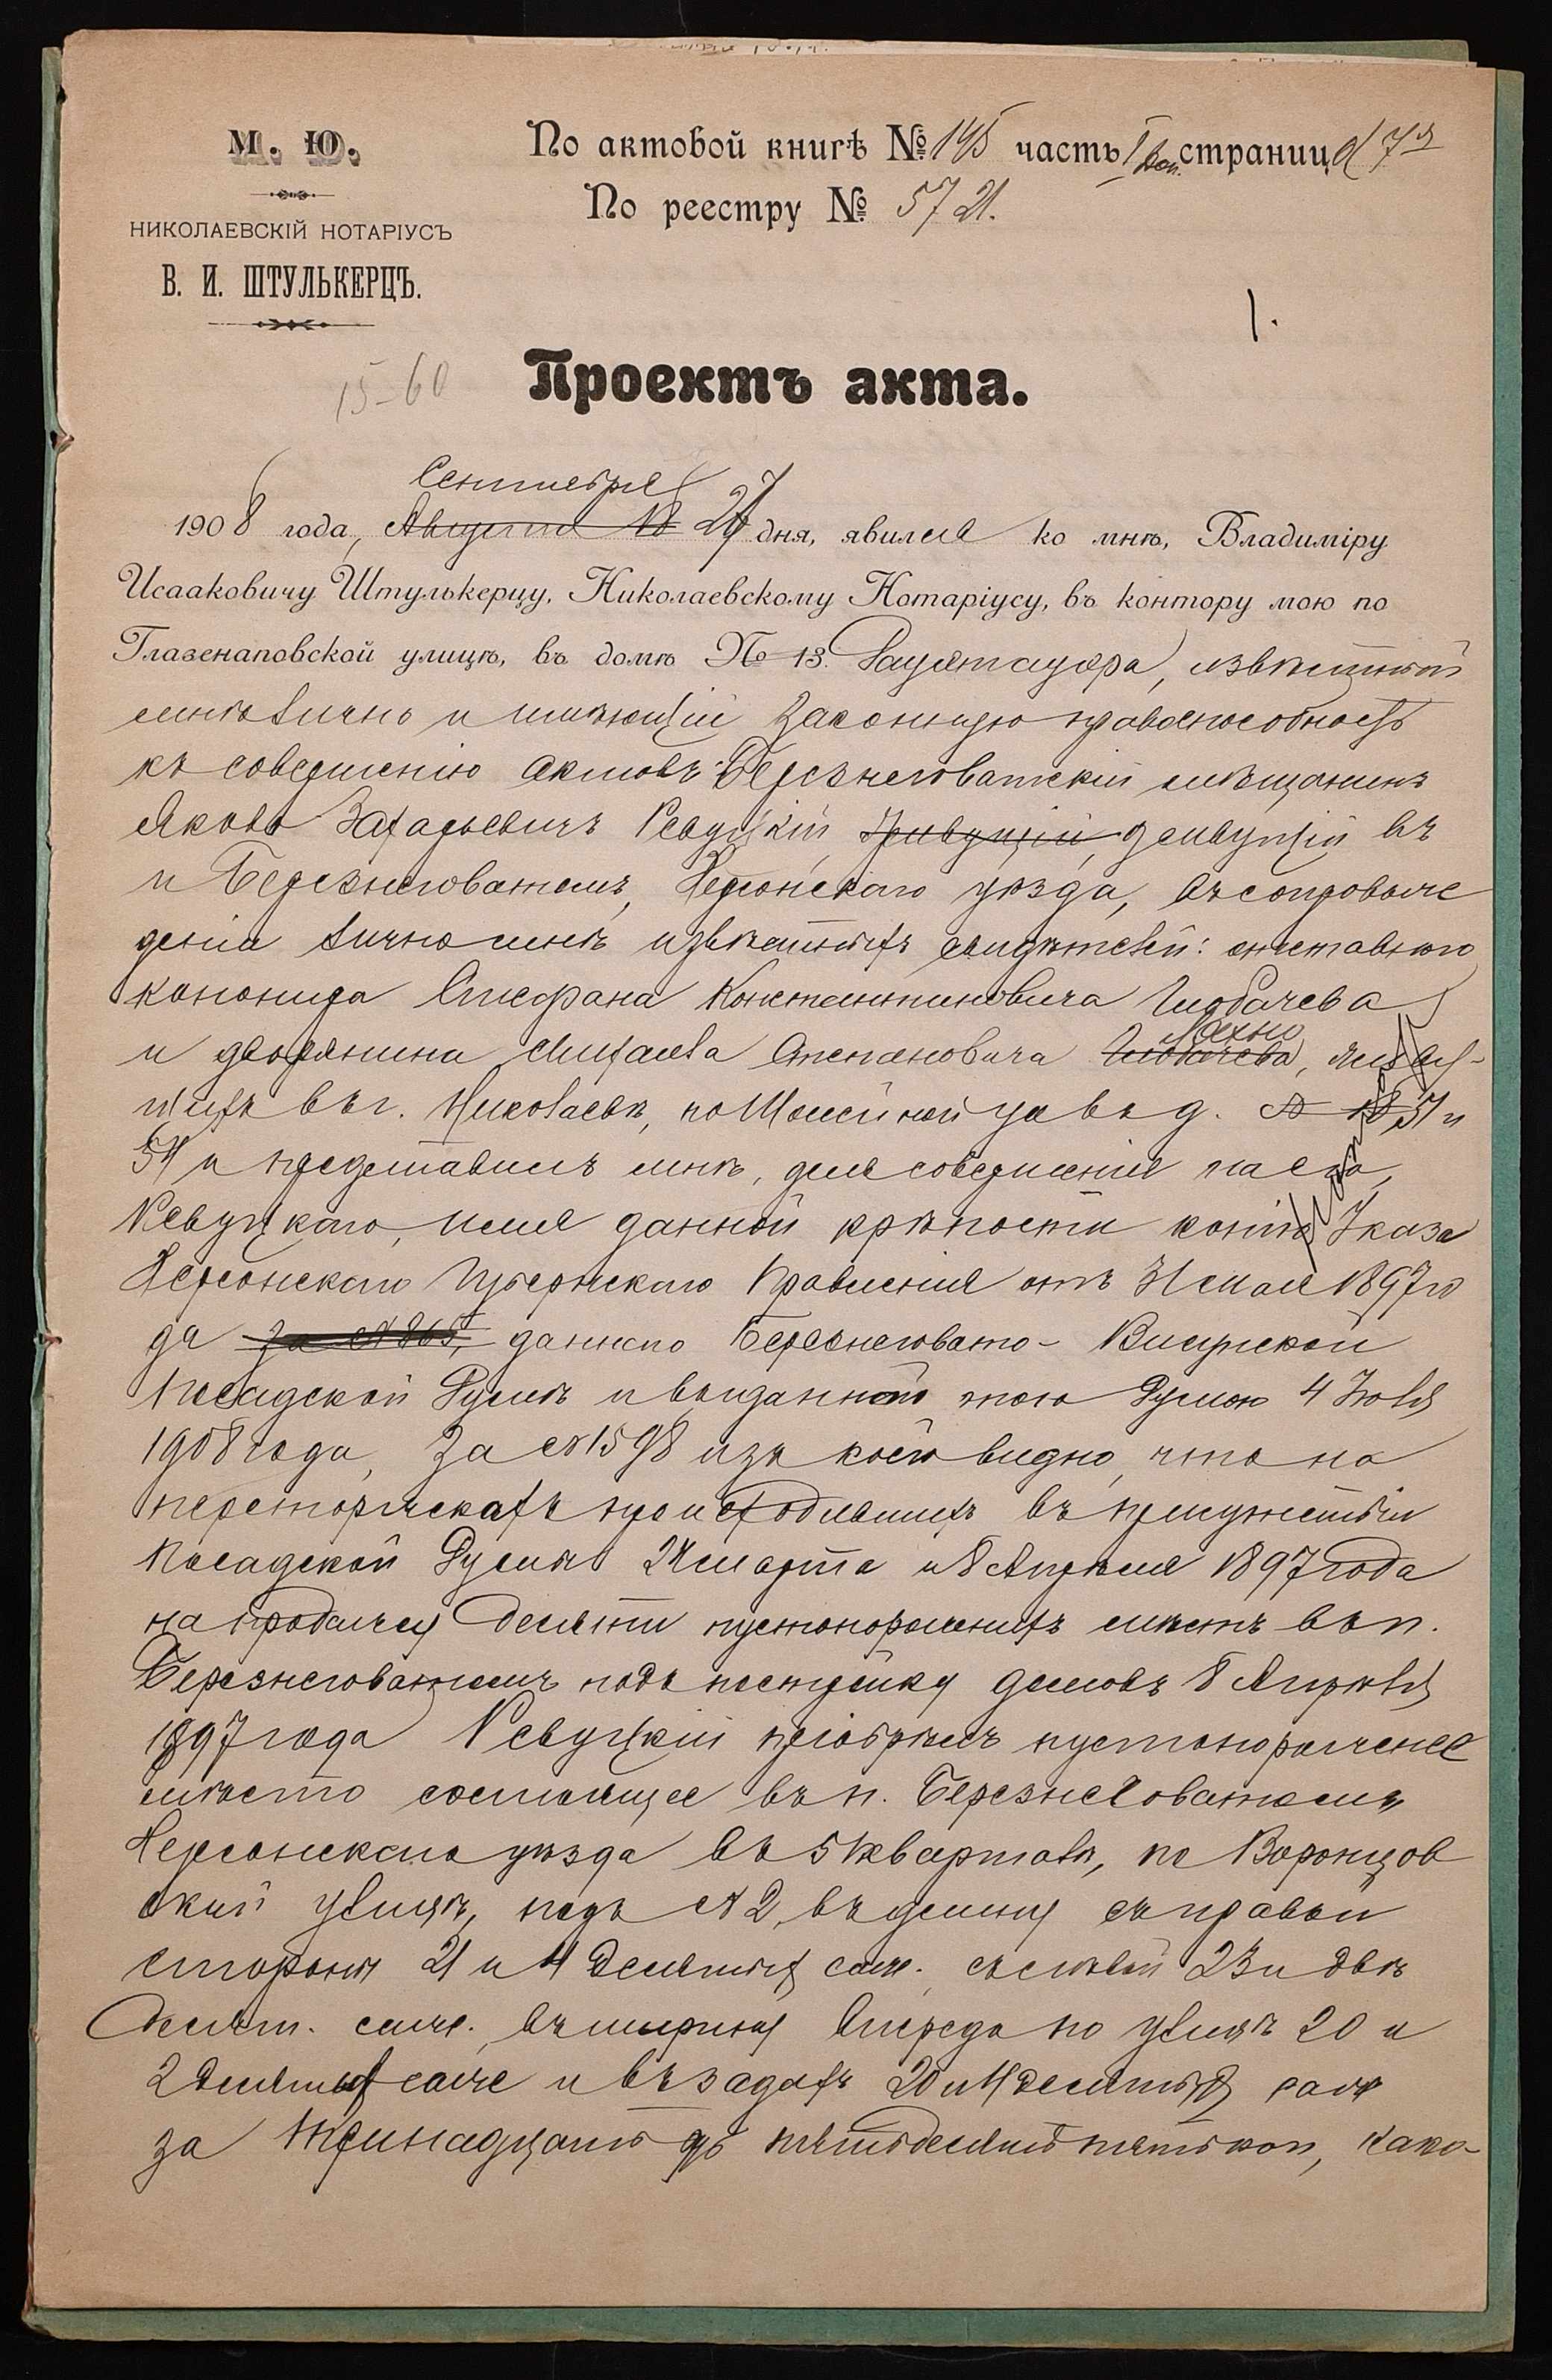 М. Ю.
НИКОЛАЕВСКІЙ НОТАРІУСЪ
В. И. ШТУЛЬКЕРЦЪ.
По актовой книгѣ № 145 часть I страница 7я
По реестру № 5721.
1.
15-60
Проектъ акта.
Сентября
1908 года, Августа 27 дня, явился ко мнѣ, Владиміру
Исааковичу Штулькерцу, Николаевскому Нотаріусу, въ контору мою по
Глазенаповской улицѣ, въ домѣ № 13. извѣстный
мнѣ лично и имѣющій законную правоспособность
къ совершенію актовъ Березнеговатскій мѣщанинъ
Яковъ Захарьевичъ Ревуцкій, живущій, живущій въ
п Березнеговатомъ, Херсонскаго уѣзда, въ сопровож
деніи лично мнѣ извѣстныхъ свидѣтелей: отставного
канонира Стефана Константиновича Глобачева
и дворянина Михаила Степановича Глобачева, Махно живу-
щихъ въ г. Николаевѣ, по Шоссейной ул въ д. № 57 и
54 и представилъ мнѣ, для совершенія на его,
Ревуцкаго, имя данной крѣпости копію Указа
Херсонскаго Губернскаго Правленія отъ 31 мая 1897 го
да за № 865, даннаго Березнеговато- Висунской
Посадской Думѣ и выданной тою Думою 4 Іюля
1908 года, за № 1598 изъ коей видно, что на
переторжкахъ происходившихъ въ присутствіи
Посадской Думы 24 марта и 8 Апрѣля 1897 года
на продажу десяти пустопорожнихъ мѣстъ въ п.
Березнеговатомъ подъ постройку домовъ 8 Апрѣля
1897 года Ревуцкій пріобрѣлъ пустопорожнее
мѣсто состоящее въ п. Березнеговатомъ
Херсонскаго уѣзда въ 5 кварталѣ, по Воронцов
ской улицѣ, подъ № 2, въ длину съ правой
стороны 21 и 4 десятыхъ саж. съ лѣвой 23 и двѣ
десят. саж. въ ширину впереди по улицѣ 20 и
2 десятыхъ саж и въ задахъ 20 и 4 десятыхъ саж
за тринадцать р пятьдесятъ пять коп, како-